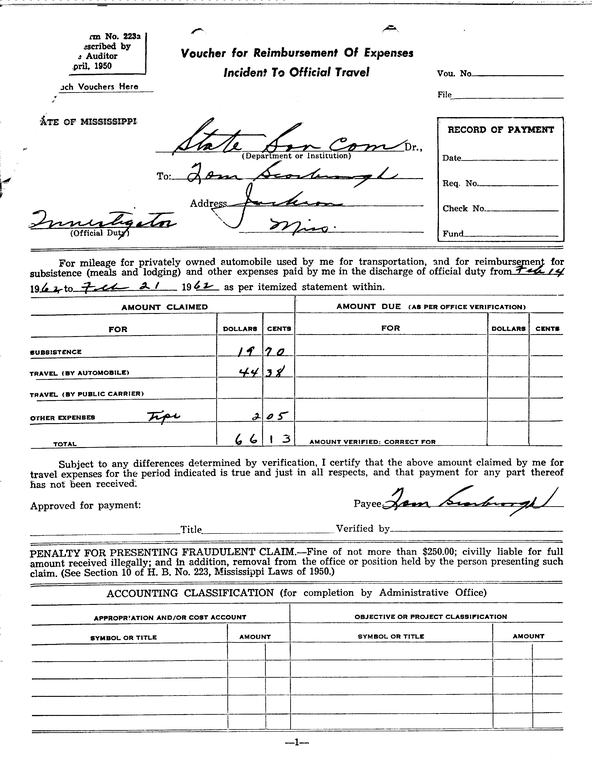 rm No. 223a
escribed by
e Auditor
pril, 1950
ach Vouchers Here
Voucher for Reimbursement Of Expenses
Incident To Official Travel
Vou. No.
File
ATE OF MISSISSIPPI
State Sov Com Dr.,
(Department or Institution)
To: Tom Scarbrough
Address Jackson
Miss.
Investigator
(Official Duty)
RECORD OF PAYMENT
Date
Req. No.
Check No.
Fund
For mileage for privately owned automobile used by me for transportation, and for reimbursement for
subsistence (meals and lodging) and other expenses paid by me in the discharge of official duty from Feb 14
1962 to Feb 21 1962 as per itemized statement within.
AMOUNT CLAIMED AMOUNT DUE (AS PER OFFICE VERIFICATION)
FOR DOLLARS CENTS FOR DOLLARS CENTS
SUBSISTENCE 19 70
TRAVEL (BY AUTOMOBILE) 44 38
TRAVEL (BY PUBLIC CARRIER)
OTHER EXPENSES Tips 2 05
TOTAL 66 13 AMOUNT VERIFIED: CORRECT FOR
Subject to any differences determined by verification, I certify that the above amount claimed by me for
travel expenses for the period indicated is true and just in all respects, and that payment for any part thereof
has not been received.
Approved for payment: Payee Tom Scarbrough
Title Verified by
PENALTY FOR PRESENTING FRAUDULENT CLAIM.—Fine of not more than $250.00; civilly liable for full
amount received illegally; and in addition, removal from the office or position held by the person presenting such
claim. (See Section 10 of H. B. No. 223, Mississippi Laws of 1950.)
ACCOUNTING CLASSIFICATION (for completion by Administrative Office)
APPROPRIATION AND/OR COST ACCOUNT OBJECTIVE OR PROJECT CLASSIFICATION
SYMBOL OR TITLE AMOUNT SYMBOL OR TITLE AMOUNT
—1—